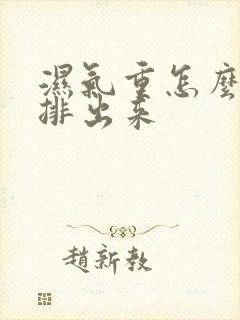 濕氣重怎麼
排出來
趙新教